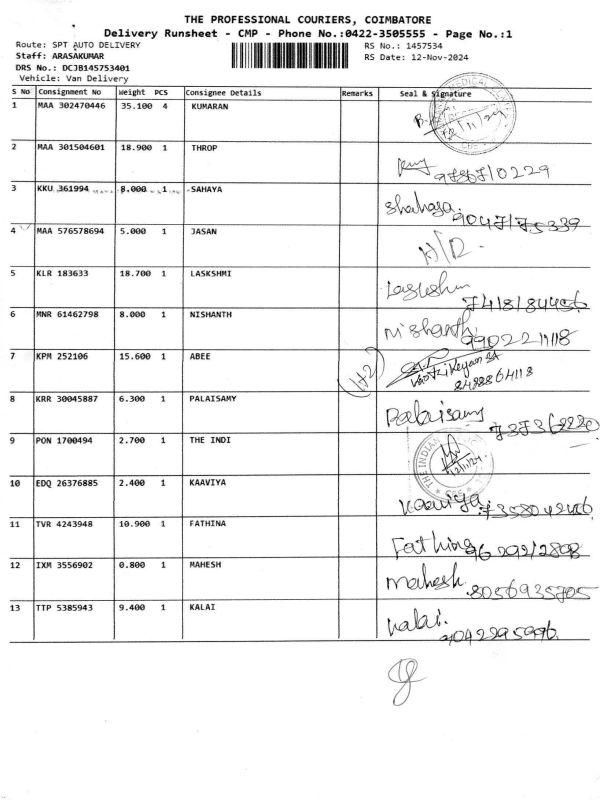 THE PROFESSIONAL COURIERS, COIMBATORE
Delivery Runsheet - CMP - Phone No.:0422-3505555 - Page No.:1
Route: SPT AUTO DELIVERY
RS No.: 1457534
Staff: ARASAKUMAR
RS Date: 12-Nov-2024
DRS No.: DCJB145753401
Vehicle: Van Delivery
S No Consignment No Weight PCS Consignee Details Remarks Seal & Signature
1 MAA 302470446 35.100 4 KUMARAN
2 MAA 301504601 18.900 1 THROP
3 KKU 361994 8.000 1 SAHAYA
4 MAA 576578694 5.000 1 JASAN
5 KLR 183633 18.700 1 LASKSHMI
6 MNR 61462798 8.000 1 NISHANTH
Nishanth
7 KPM 252106 15.600 1 ABEE
8498864118
8 KRR 30045887 6.300 1 PALAISAMY
Palaisamy
9 PON 1700494 2.700 1 THE INDI
THE INDIAN
12/11/24
10 EDQ 26376885 2.400 1 KAAVIYA
Kaaviya
11 TVR 4243948 10.900 1 FATHINA
Fathina
12 IXM 3556902 0.800 1 MAHESH
Mahesh 8056935705
13 TTP 5385943 9.400 1 KALAI
Kalai
9042295996